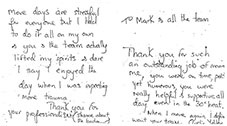 Move days are stressful
for everyone but I had
to do it all on my own
& you & the team actually
lifted my spirits & dare
I say I enjoyed the
day when I was expecting
more trauma.
Thank you for
your professionalism
To Mark & all the team
Thank you for such
an outstanding job of moving
me, you were on time, polite
yet humorous, you were
really helpful & supportive all
day, even in the 30° heat,
When I move again, I
want your team.